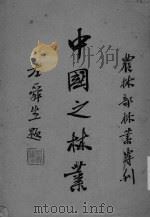 農林部林業專刊
中國之林業
左舜生題